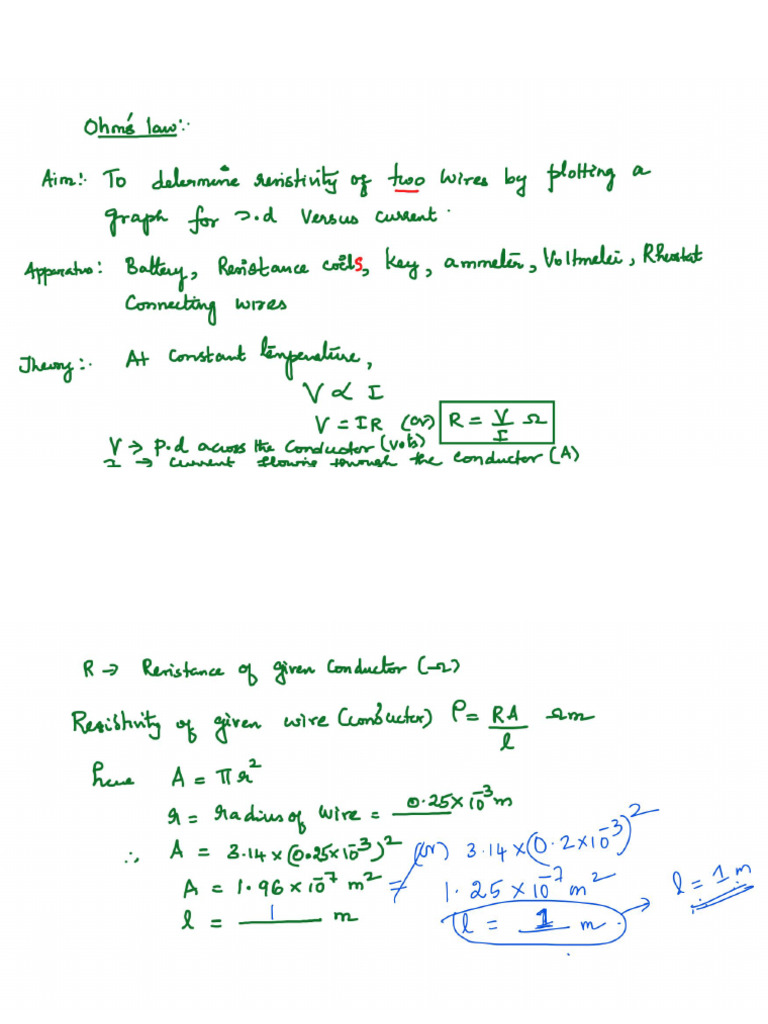 Ohm's law:-
Aim:- To determine resistivity of two wires by plotting a
graph for p.d versus current.
Apparatus: Battery, Resistance coils, key, ammeter, Voltmeter, Rheostat
Connecting wires
Theory:- At constant temperature,
V ∝ I
V = IR (or) R = V/I Ω
V → P.d across the conductor (volts)
I → current flowing through the conductor (A)
R → Resistance of given conductor (Ω)
Resistivity of given wire (conductor) ρ = RA/l Ωm
here A = πr²
r = radius of wire = 0.25×10⁻³ m
∴ A = 3.14×(0.25×10⁻³)² (or) 3.14×(0.2×10⁻³)²
A = 1.96×10⁻⁷ m² = 1.25×10⁻⁷ m²
l = 1 m l = 1 m → l = 1 m